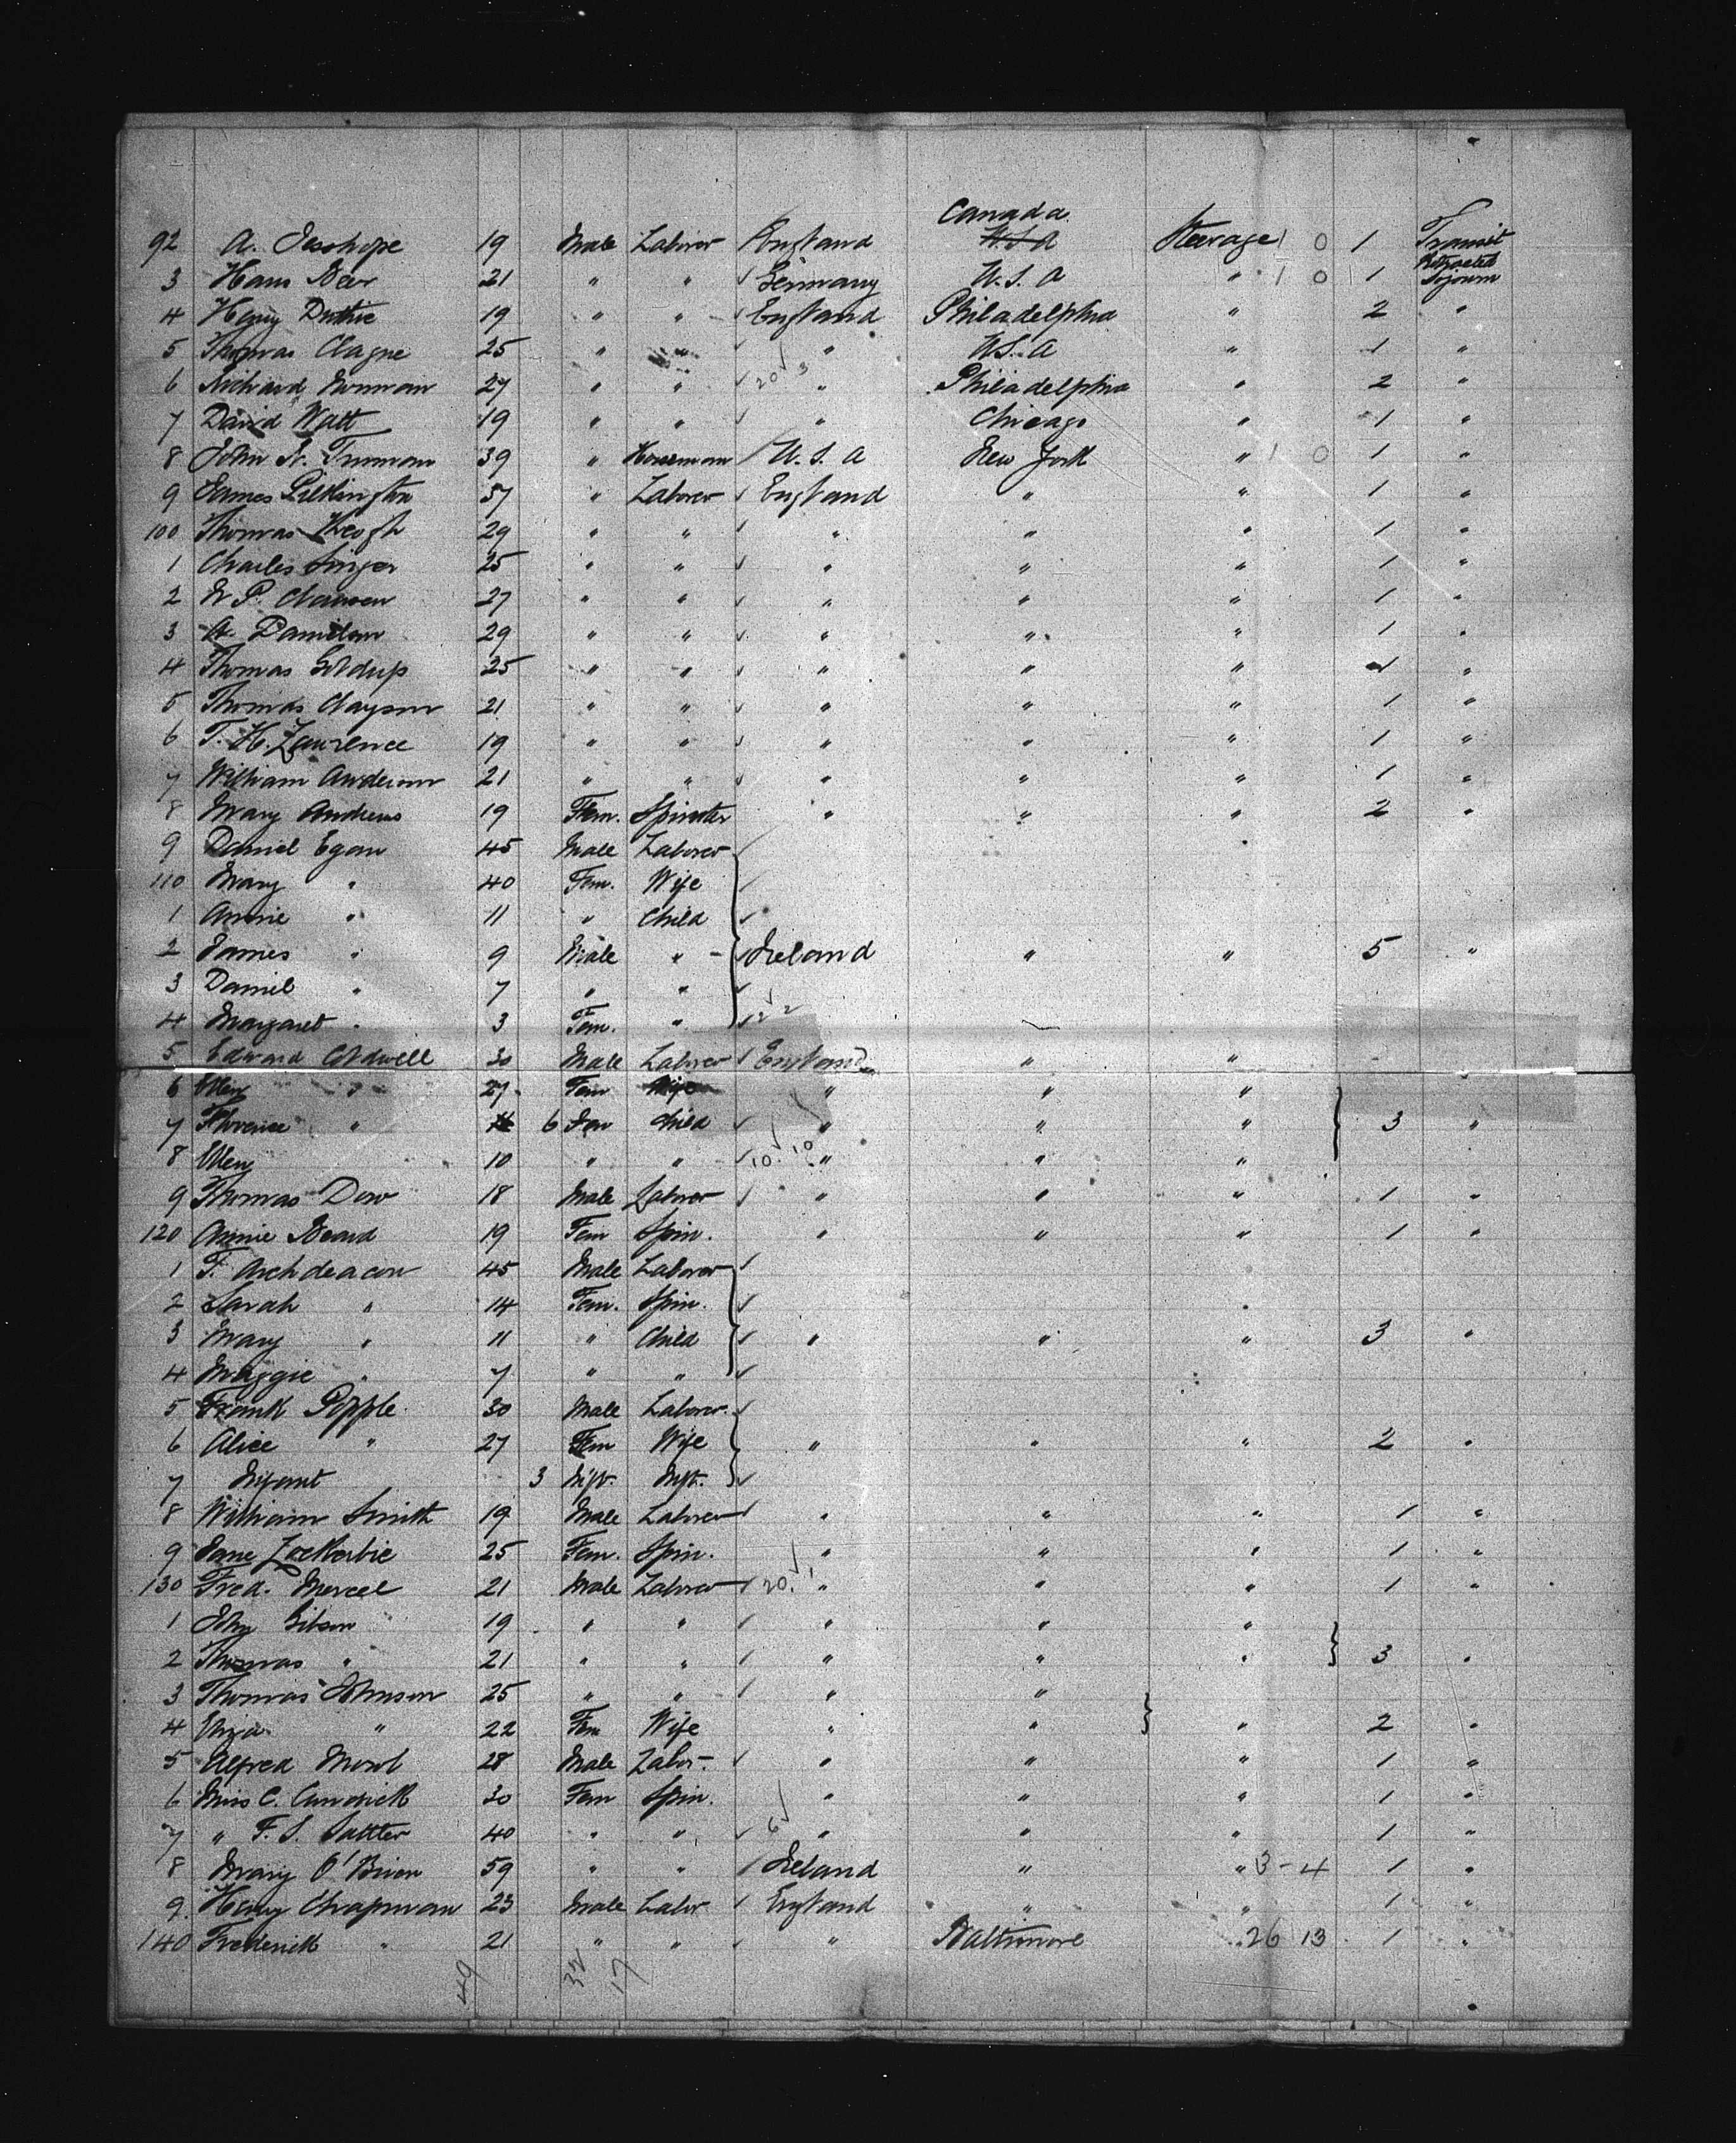 Canada
92 A. Jesshope 19 Male Laborer England U.S.A Steerage 1 0 1 Transit
3 Hans Beer 21 " " Germany U.S.A " 1 0 1 Protracted Sojourn
4 Henry Duthie 19 " " England Philadelphia " 2 "
5 Thomas Clague 25 " " " U.S.A " 1 "
6 Richard 27 " " 20 3 " Philadelphia " 2 "
7 David Watt 19 " " " Chicago " 1 "
8 John N. Truman 39 " Horseman U.S.A New York " 1 0 1 "
9 James Pilkington 57 " Laborer England " " 1 "
100 Thomas Keogh 29 " " " " " 1 "
1 Charles Singer 25 " " " " " 1 "
2 P. 27 " " " " " 1 "
3 A. 29 " " " " " 1 "
4 Thomas Goldup 25 " " " " " 1 "
5 Thomas Clayson 21 " " " " " 1 "
6 T. H. Lawrence 19 " " " " " 1 "
7 William Anderson 21 " " " " " 1 "
8 Mary Andrews 19 Fem. Spinster " " " 2 "
9 Daniel Egan 45 Male Laborer "
110 Mary " 40 Fem. Wife
1 Annie " 11 " Child
2 James " 9 Male " Ireland " " 5 "
3 Daniel " 7 " "
4 Margaret " 3 Fem. " 2 2
5 Edward Coldwell 30 Male Laborer England " "
6 Ellen " 27 Fem Wife " " "
7 Florence " 6 Fem Child " " " 3 "
8 Ellen 10 " " 10 10 " " "
9 Thomas Dow 18 Male Laborer " " " 1 "
120 Annie Beard 19 Fem Spin. " " " 1 "
1 F. Archdeacon 45 Male Laborer
2 Sarah " 14 Fem. Spin. "
3 Mary " 11 " Child " " " 3 "
4 Maggie " 7 " "
5 Frank Popple 30 Male Laborer
6 Alice " 27 Fem Wife " " " 2 "
7 Infant 3 Inft. Inft.
8 William Smith 19 Male Laborer " " " 1 "
9 Jane Lockerbie 25 Fem. Spin. " " " 1 "
130 Fred. Mercel 21 Male Laborer 20 1 " " " 1 "
1 John Gibson 19 " " " " "
2 Thomas " 21 " " " " " 3 "
3 Thomas Johnson 25 " " " "
4 Eliza " 22 Fem Wife " " " 2 "
5 Alfred 28 Male Labor. " " " 1 "
6 Miss C. 30 Fem Spin. " " " 1 "
7 " F. S. Sattler 40 " " 6 " " " 1 "
8 Mary O'Brien 59 " " Ireland " " 3-4 1 "
9 Henry Chapman 23 Male Labor England " " 1 "
140 Frederick " 21 " " " Baltimore " 26 13 1 "
49 32 17